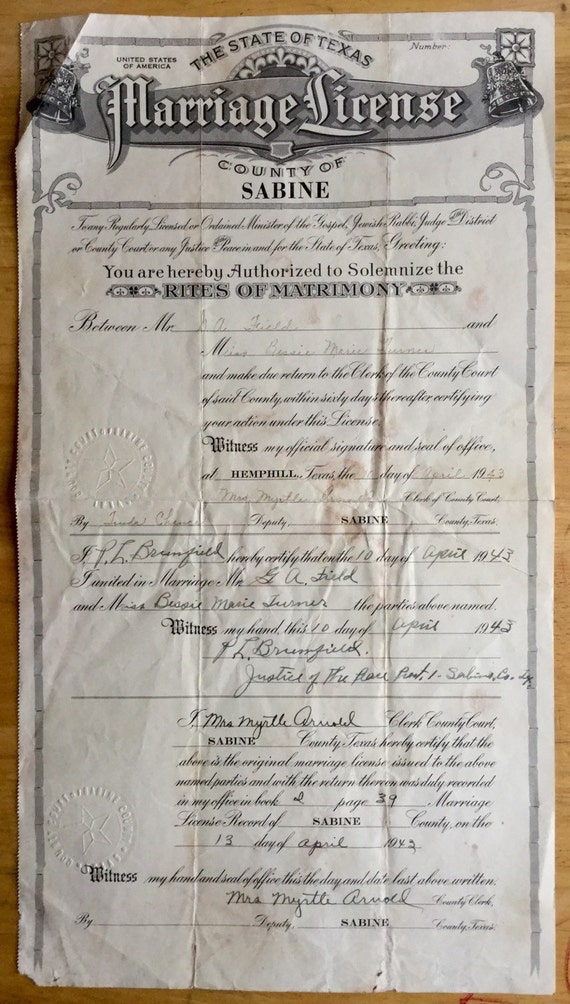 THE STATE OF TEXAS
UNITED STATES
OF AMERICA
Number:
Marriage License
COUNTY OF
SABINE
To any Regularly Licensed or Ordained Minister of the Gospel, Jewish Rabbi, Judge of the District
or County Court or any Justice of the Peace in and for the State of Texas, Greeting:
You are hereby Authorized to Solemnize the
RITES OF MATRIMONY
Between Mr. G A. Field and
Miss Bessie Marie Turner
and make due return to the Clerk of the County Court
of said County, within sixty days thereafter, certifying
your action under this License.
Witness my official signature and seal of office,
at HEMPHILL, Texas, the 10 day of April 1943
Mrs Myrtle Arnold Clerk of County Court,
By Deputy, SABINE County, Texas.
I, P. L. Brumfield hereby certify that on the 10 day of April 1943
I united in Marriage Mr. G A. Field
and Miss Bessie Marie Turner the parties above named.
Witness my hand, this 10 day of April 1943
P L Brumfield.
Justice of The Peace Prect. 1 - Sabine, Co. Tx
I, Mrs Myrtle Arnold Clerk County Court,
SABINE County, Texas, hereby certify that the
above is the original marriage license issued to the above
named parties and with the return thereon was duly recorded
in my office in book 2 page 39 Marriage
License Record of SABINE County, on the
13 day of April 1943
Witness my hand and seal of office this the day and date last above written.
Mrs Myrtle Arnold County Clerk,
By Deputy, SABINE County, Texas.